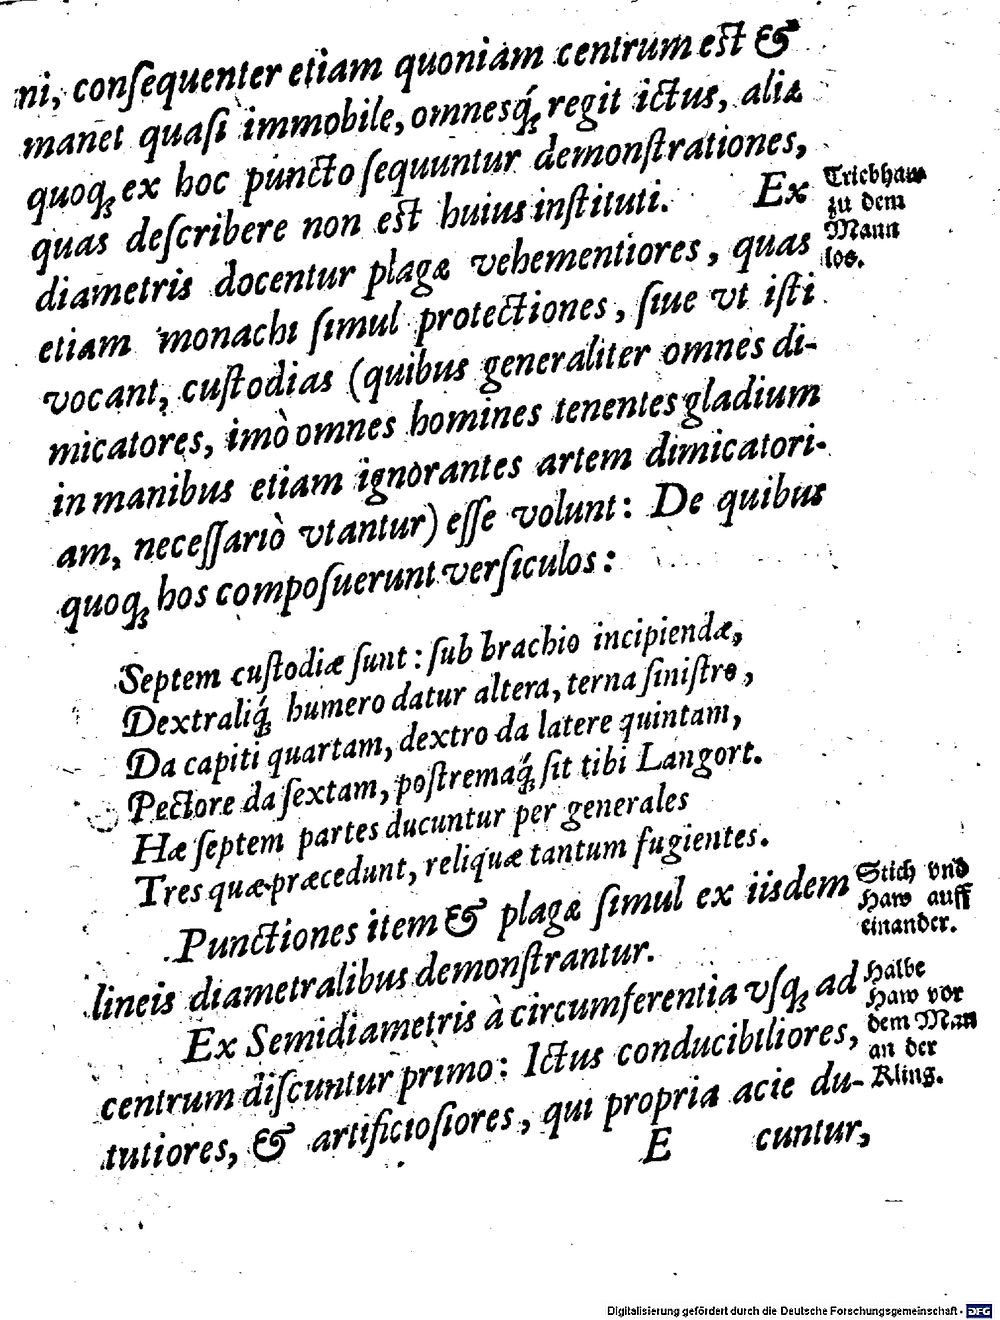 ni, conſequenter etiam quoniam centrum est &
manet quaſi immobile, omnesq́ꝫ regit ictus, aliæ
quoqꝫ ex hoc puncto ſequuntur demonſtrationes,
quas deſcribere non est huius inſtituti. Ex
Triebhaw
zu dem
Mann
los.
diametris docentur plagæ vehementiores, quas
etiam monachi ſimul protectiones, ſiue vt iſti
vocant, cuſtodias (quibus generaliter omnes di-
micatores, imò omnes homines tenentes gladium
in manibus etiam ignorantes artem dimicatori-
am, neceſſariò vtantur) eſſe volunt: De quibus
quoqꝫ hos compoſuerunt verſiculos:
Septem cuſtodiæ ſunt: ſub brachio incipiendæ,
Dextraliq́ꝫ humero datur altera, terna ſiniſtro,
Da capiti quartam, dextro da latere quintam,
Pectore da ſextam, poſtremaq́ꝫ ſit tibi Langort.
Hæ ſeptem partes ducuntur per generales
Tres quæ præcedunt, reliquæ tantum fugientes.
Punctiones item & plagæ ſimul ex iisdem
lineis diametralibus demonſtrantur.
Stich vnd
Haw auff
einander.
Ex Semidiametris à circumferentia vſqꝫ ad
centrum diſcuntur primo: Ictus conducibiliores,
tutiores, & artificioſiores, qui propria acie du-
Halbe
Haw vor
dem Man
an der
Kling.
E cuntur,
Digitalisierung gefördert durch die Deutsche Forschungsgemeinschaft - DFG